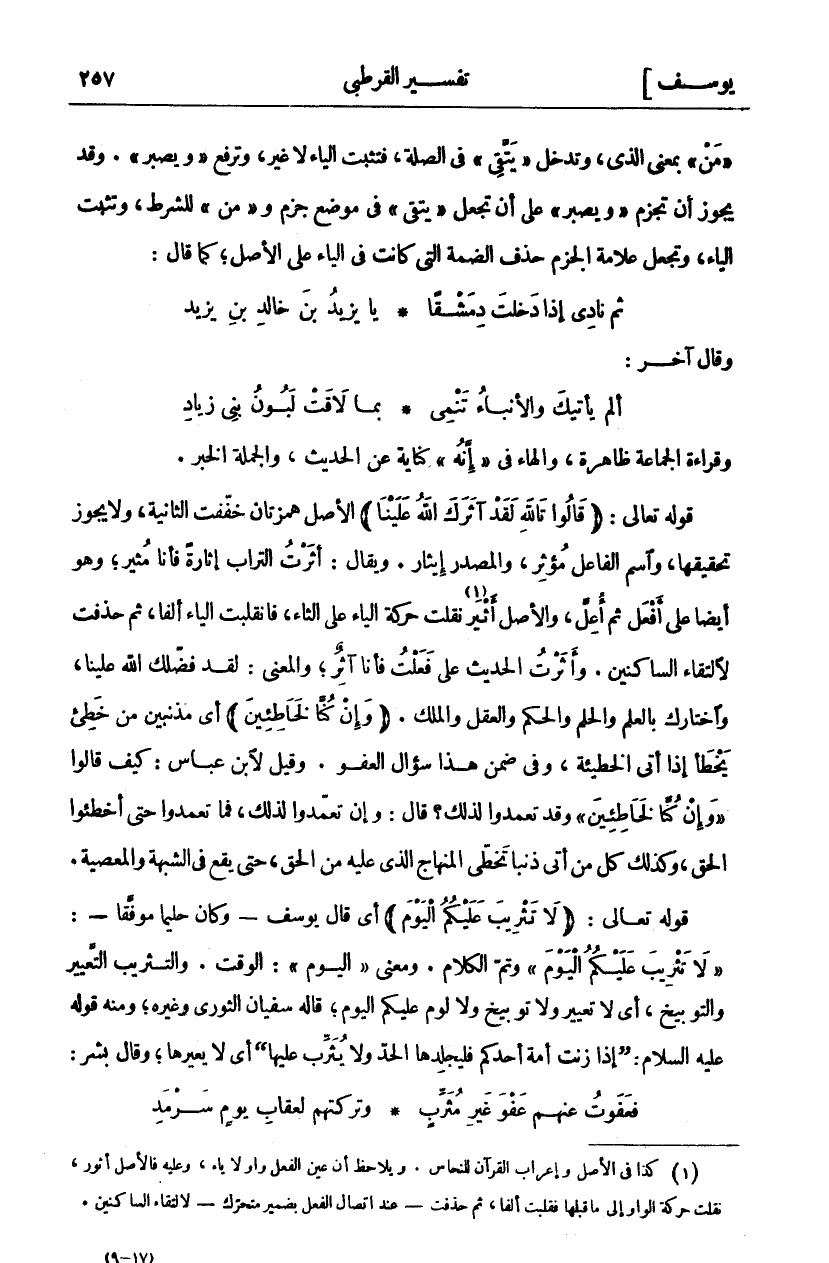 يوسف ] تفسير القرطبى ٢٥٧
«مَنْ» بمعنى الذى، وتدخل «يَتَّقِى» فى الصلة، فتثبت الياء لا غير، وترفع «ويصبر» . وقد
يجوز أن تجزم «ويصبر» على أن تجعل «يتقى» فى موضع جزم و«من» للشرط، وتثبت
الياء، وتجعل علامة الجزم حذف الضمة التى كانت فى الياء على الأصل؛ كما قال :
ثم نادِى إذا دَخلتَ دِمَشْقًا * يا يزيدُ بنَ خالدِ بنِ يزيد
وقال آخر :
ألم يأتيكَ والأنباءُ تَنْمِى * بما لَاقَتْ لَبُونُ بنِى زيادِ
وقراءة الجماعة ظاهرة ، والهاء فى «إِنَّهُ» كناية عن الحديث ، والجملة الخبر .
قوله تعالى : ﴿ قَالُوا تَاللهِ لَقَدْ آثَرَكَ اللهُ عَلَيْنَا ﴾ الأصل همزتان خفّفت الثانية، ولا يجوز
تحقيقها، وٱسم الفاعل مُؤثِر ، والمصدر إيثار . ويقال : أَثَرْتُ التراب إثارةً فأنا مُثير؛ وهو
أيضا على أَفْعَل ثم أُعِلَّ، والأصل أَثْيَر(١) نقلت حركة الياء على الثاء، فانقلبت الياء ألفا، ثم حذفت
لٱلتقاء الساكنين . وأَثَرْتُ الحديث على فَعَلْتُ فأنا آثِرٌ ؛ والمعنى : لقد فضّلك الله علينا،
وٱختارك بالعلم والحلم والحكم والعقل والملك . ﴿ وَإِنْ كُنَّا لَخَاطِئِينَ ﴾ أى مذنبين من خَطِئَ
يَخْطَأُ إذا أتى الخطيئة ، وفى ضمن هذا سؤال العفو . وقيل لٱبن عباس : كيف قالوا
«وَإِنْ كُنَّا لَخَاطِئِينَ» وقد تعمدوا لذلك؟ قال : وإن تعمّدوا لذلك، فما تعمدوا حتى أخطئوا
الحق ،وكذلك كل من أتى ذنبا تَخطّى المنهاج الذى عليه من الحق ،حتى يقع فى الشبهة والمعصية .
قوله تعالى : ﴿ لَا تَثْرِيبَ عَلَيْكُمُ الْيَوْمَ ﴾ أى قال يوسف — وكان حليما موفَّقا — :
« لَا تَثْرِيبَ عَلَيْكُمُ الْيَوْمَ » وتمّ الكلام . ومعنى « اليوم » : الوقت . والتثريب التَّعيير
والتوبيخ ، أى لا تعيير ولا توبيخ ولا لوم عليكم اليوم؛ قاله سفيان الثورى وغيره؛ ومنه قوله
عليه السلام: ”إذا زنت أمة أحدكم فليجلِدها الحدّ ولا يُثَرِّب عليها“ أى لا يعيرها ؛ وقال بشر :
فعَفَوتُ عنهم عَفْوَ غَيرِ مُثَرِّبٍ * وتركتهم لعقابِ يومٍ سَرْمَدِ
(١) كذا فى الأصل وإعراب القرآن للنحاس . ويلاحظ أن عين الفعل واو لا ياء ، وعليه فالأصل أثور ،
نقلت حركة الواو إلى ما قبلها فقلبت ألفا ، ثم حذفت — عند اتصال الفعل بضمير متحرّك — لالتقاء الساكنين .
(٩-١٧)